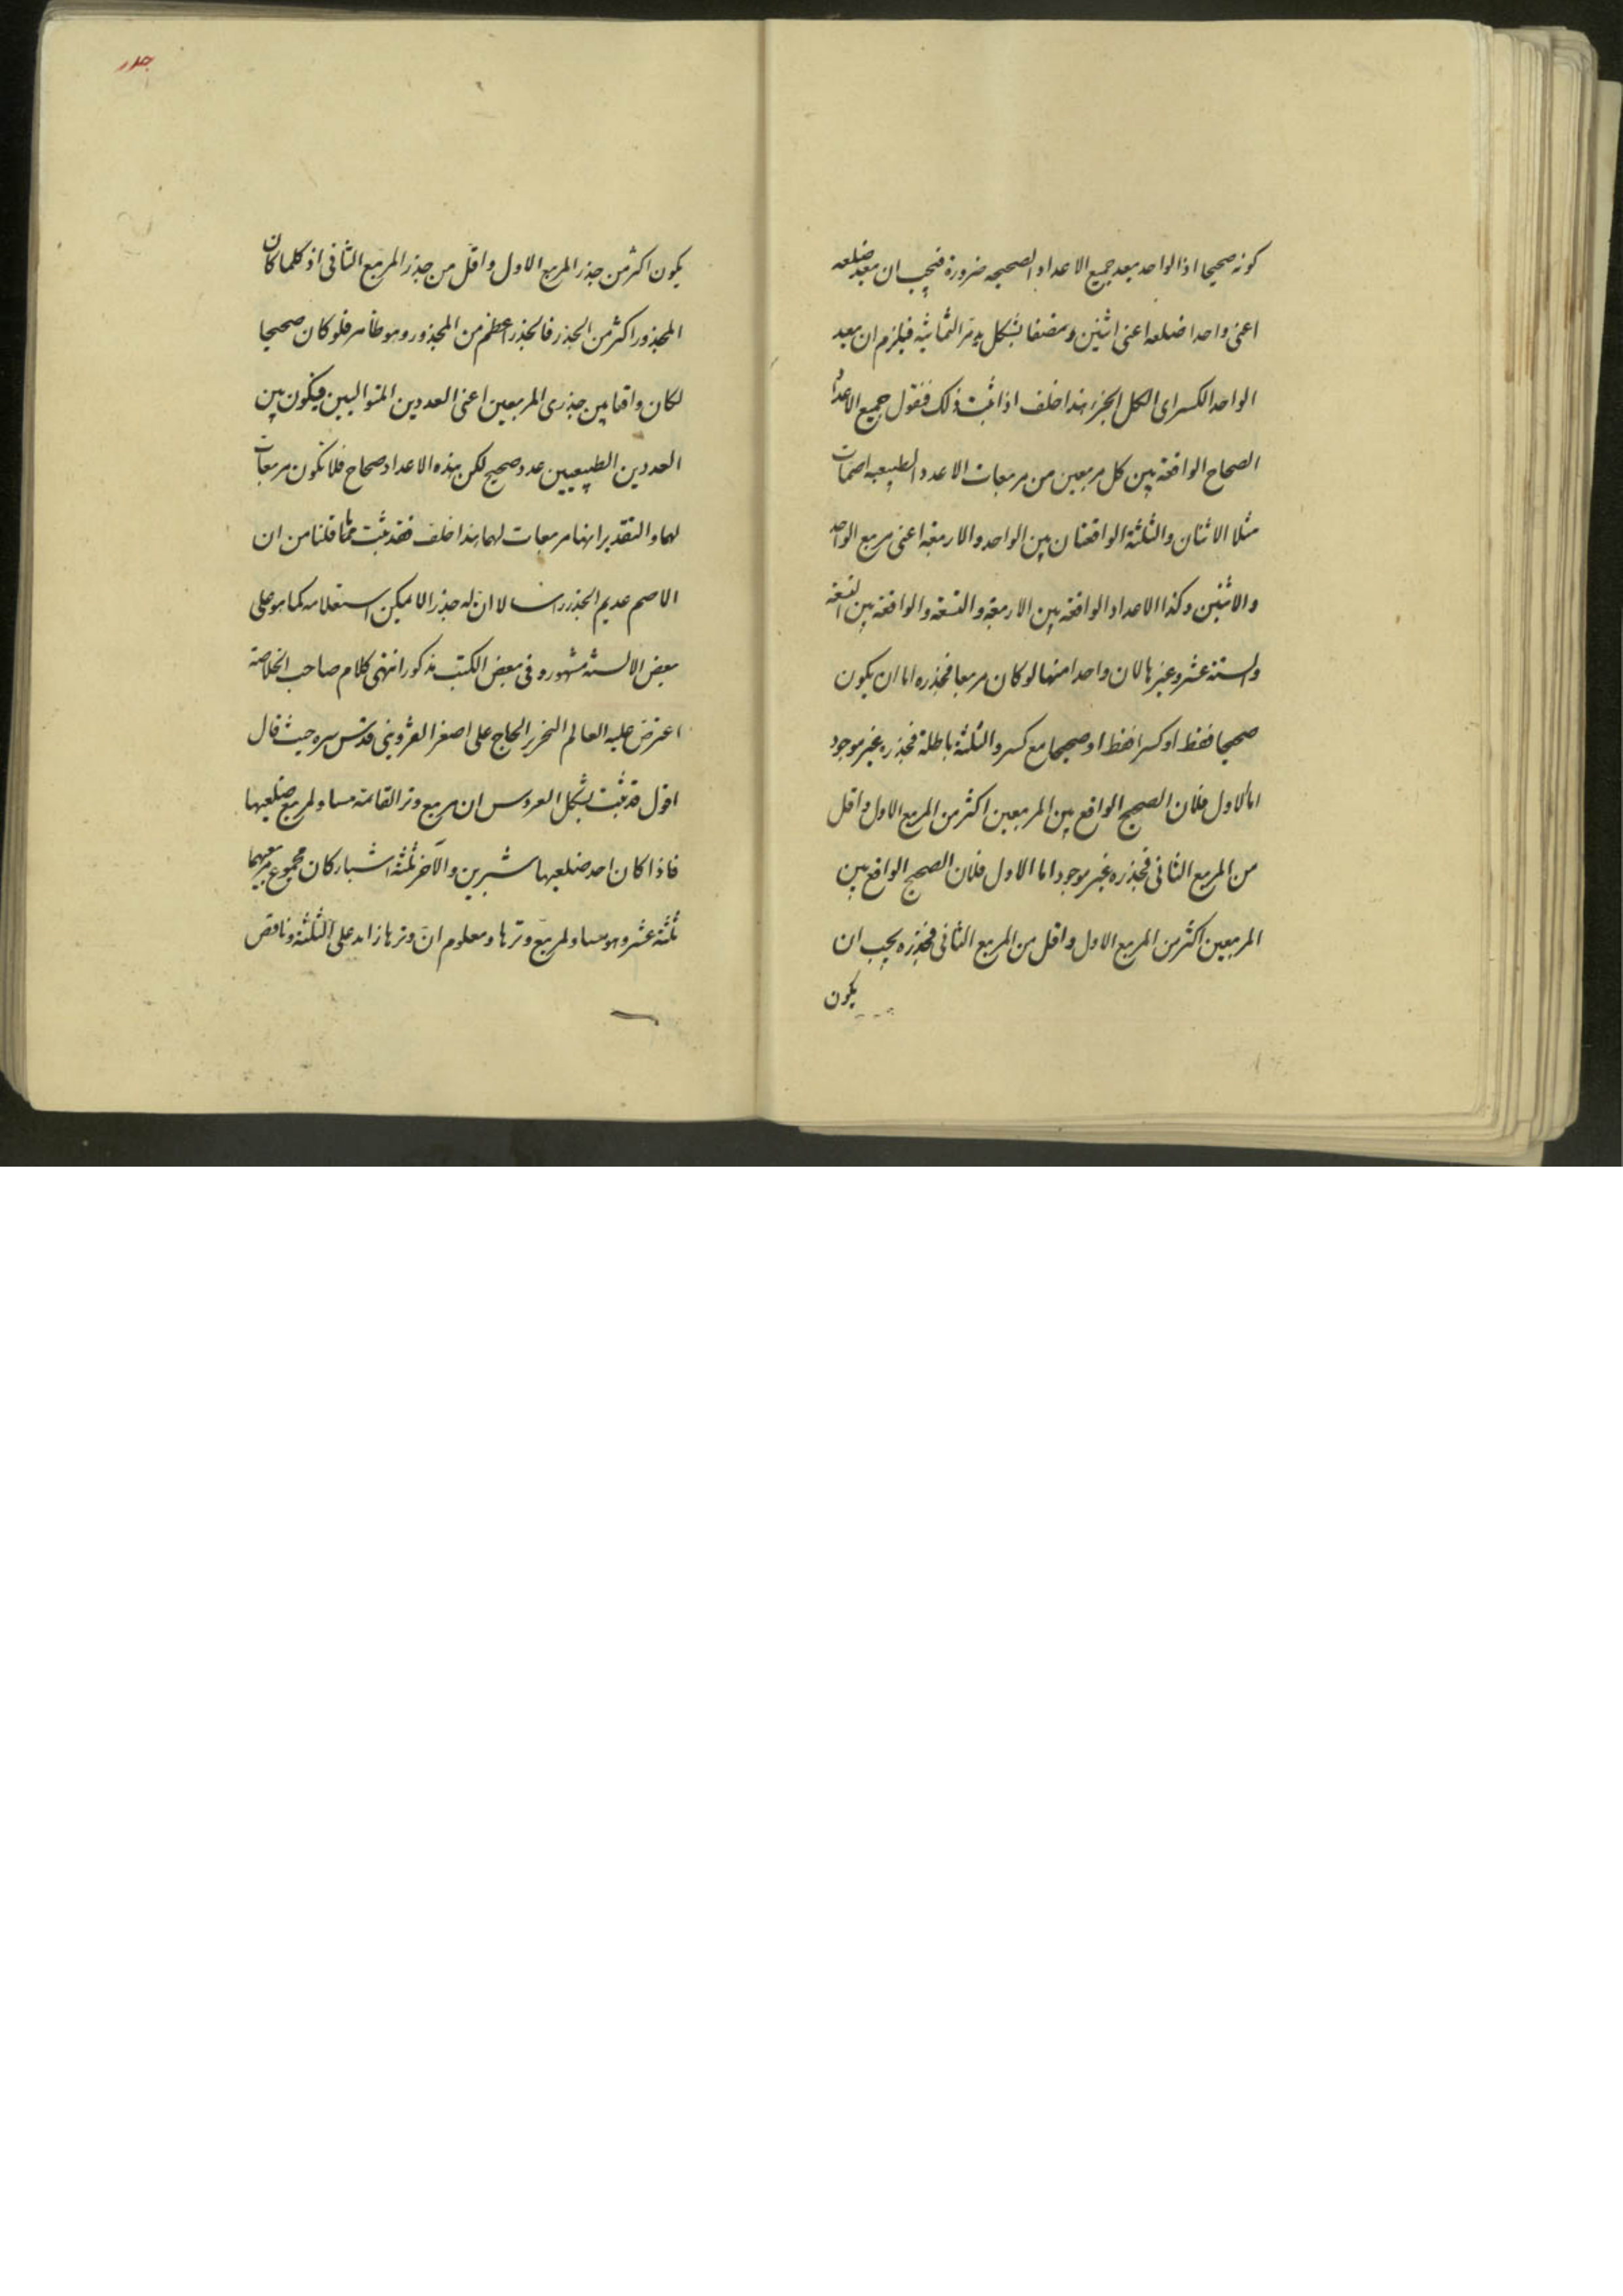 كونه صحيحا اذ الواحد يعد جميع الاعداد الصحيحه ضرورة فيجب ان يعد ضلعه
اعنى واحدا ضلعه اعنى اثنين ونصفا بشكل من الثمانية فيلزم ان يعد
الواحد الكسر اى الكل الجزء هذا خلف اذا ثبت ذلك فنقول جميع الاعداد
الصحاح الواقعة بين كل مربعين من مربعات الاعداد الطبيعيه اصمات
مثلا الاثنان والثلثة الواقعتان بين الواحد والاربعة اعنى مربع الواحد
والاثنين وكذا الاعداد الواقعة بين الاربعة والتسعة والواقعة بين التسعة
والستة عشر وغيرها لان واحدا منها لو كان مربعا فجذره اما ان يكون
صحيحا فقط او كسرا فقط او صحيحا مع كسر والثلثة باطلة فجذره غير موجود
اما الاول فلان الصحيح الواقع بين المربعين اكثر من المربع الاول واقل
من المربع الثانى فجذره غير موجود اما الاول فلان الصحيح الواقع بين
المربعين اكثر من المربع الاول واقل من المربع الثانى فجذره يجب ان
يكون
جدر
يكون اكثر من جذر المربع الاول واقل من جذر المربع الثانى اذ كلما كان
المجذور اكثر من الجذر فالجذر اعظم من المجذور وهو ظاهر فلو كان صحيحا
لكان واقعا بين جذرى المربعين اعنى العددين المتواليين فيكون بين
العددين الطبيعيين عدد صحيح لكن هذه الاعداد صحاح فلا تكون مربعات
لهما والتقدير انها مربعات لهما هذا خلف فقد ثبت مما قلنا من ان
الاصم عديم الجذر راسا لا ان له جذرا لا يمكن استعلامه كما هو على
بعض الالسنة مشهور و فى بعض الكتب مذكور انتهى كلام صاحب الخلاصة
اعترض عليه العالم النحرير الحاج على اصغر القزوينى قدس سره حيث قال
اقول قد ثبت بشكل العروس ان مربع وتر القائمة مساو لمربع ضلعيها
فاذا كان احد ضلعيها شبرين والآخر ثلثة اشبار كان مجموع مربعيهما
ثلثة عشر وهو مساو لمربع وترها ومعلوم ان وترها زايد على الثلثة وناقص